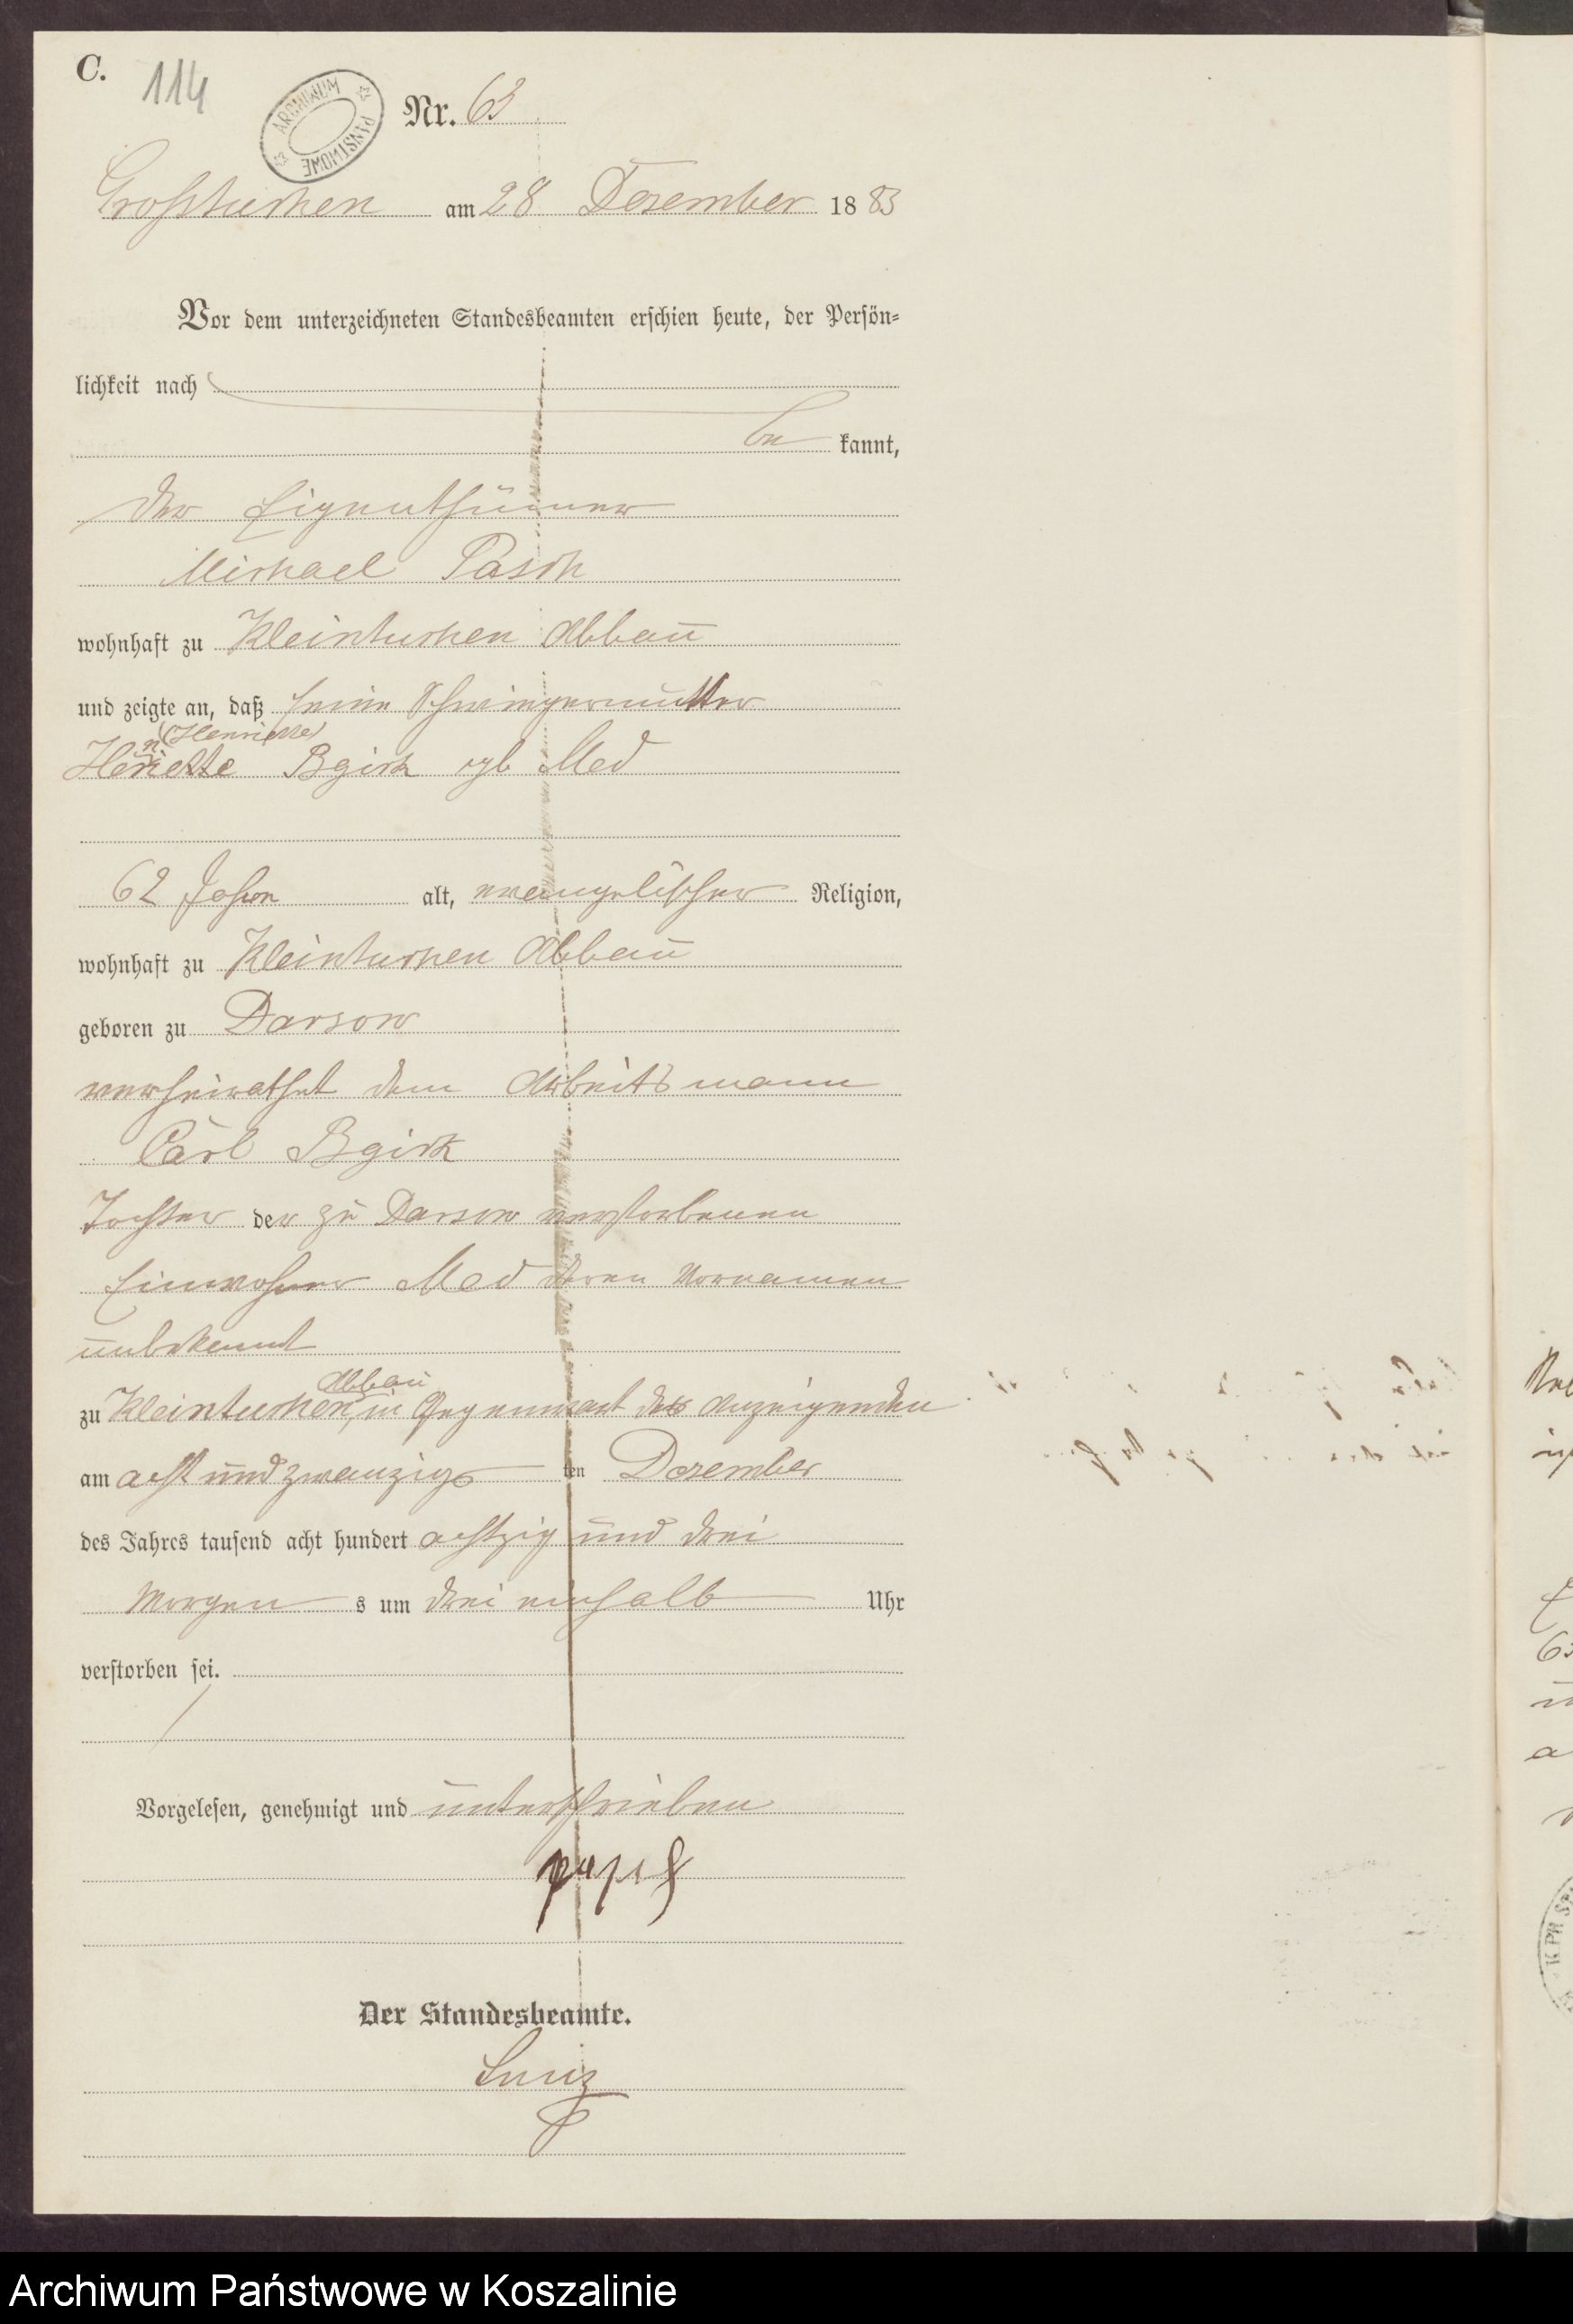 C.
114
ARCHIWUM PAŃSTWOWE
Nr. 63
Grosstuchen am 28 Dezember 1883
Vor dem unterzeichneten Standesbeamten erschien heute, der Persön-
lichkeit nach
be kannt,
der Eigenthümer
Michael Pasch
wohnhaft zu Kleintuchen Abbau
und zeigte an, daß seine Schwiegermutter
(Henriette)
Heriette Bgirk geb Med
62 Jahre alt, evangelischer Religion,
wohnhaft zu Kleintuchen Abbau
geboren zu Darsow
verheirathet dem Arbeitsmann
Carl Bgirk
Tochter der zu Darsow verstorbenen
Einwohner Med deren Vornamen
unbekannt
Abbau
zu Kleintuchen, in Gegenwart des Anzeigenden
am acht und zwanzigs ten Dezember
des Jahres tausend acht hundert achtzig und drei
Morgen s um drei einhalb Uhr
verstorben sei.
Vorgelesen, genehmigt und unterschrieben
Der Standesbeamte.
Archiwum Państwowe w Koszalinie